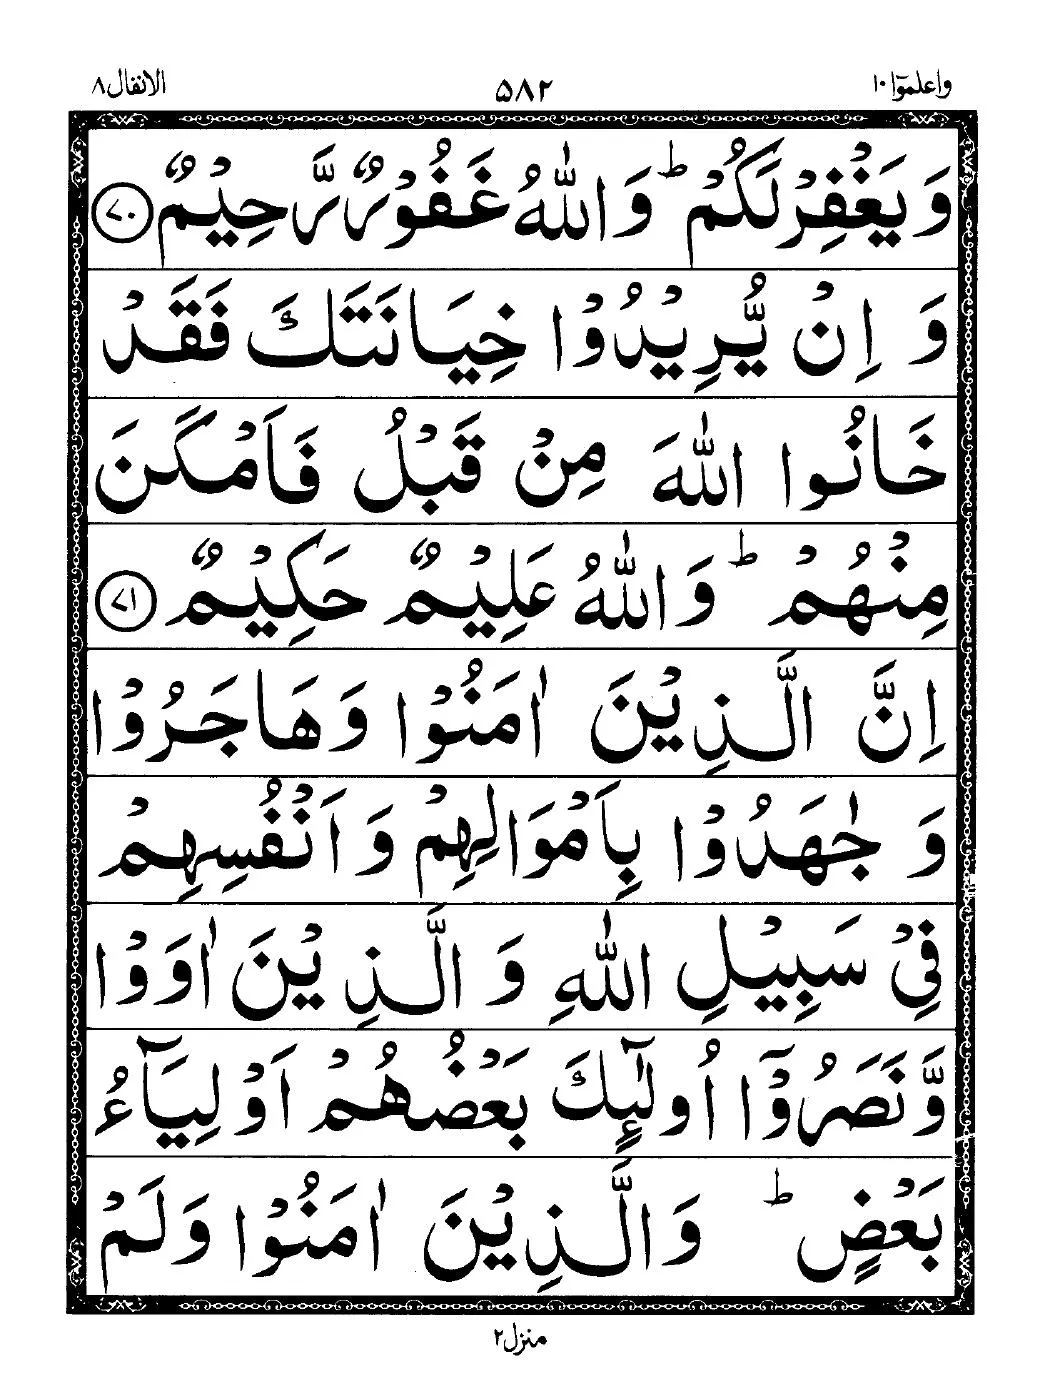 واعلموٓا ١٠ ۵۸۲ الانفال ۸
وَ یَغْفِرْ لَكُمْ ؕ وَ اللّٰهُ غَفُوْرٌ رَّحِیْمٌ ﴿۷۰﴾
وَ اِنْ یُّرِیْدُوْا خِیَانَتَكَ فَقَدْ
خَانُوا اللّٰهَ مِنْ قَبْلُ فَاَمْكَنَ
مِنْهُمْ ؕ وَ اللّٰهُ عَلِیْمٌ حَكِیْمٌ ﴿۷۱﴾
اِنَّ الَّذِیْنَ اٰمَنُوْا وَ هَاجَرُوْا
وَ جٰهَدُوْا بِاَمْوَالِهِمْ وَ اَنْفُسِهِمْ
فِیْ سَبِیْلِ اللّٰهِ وَ الَّذِیْنَ اٰوَوْا
وَّ نَصَرُوْۤا اُولٰٓىِٕكَ بَعْضُهُمْ اَوْلِیَآءُ
بَعْضٍ ؕ وَ الَّذِیْنَ اٰمَنُوْا وَ لَمْ
منزل ۲